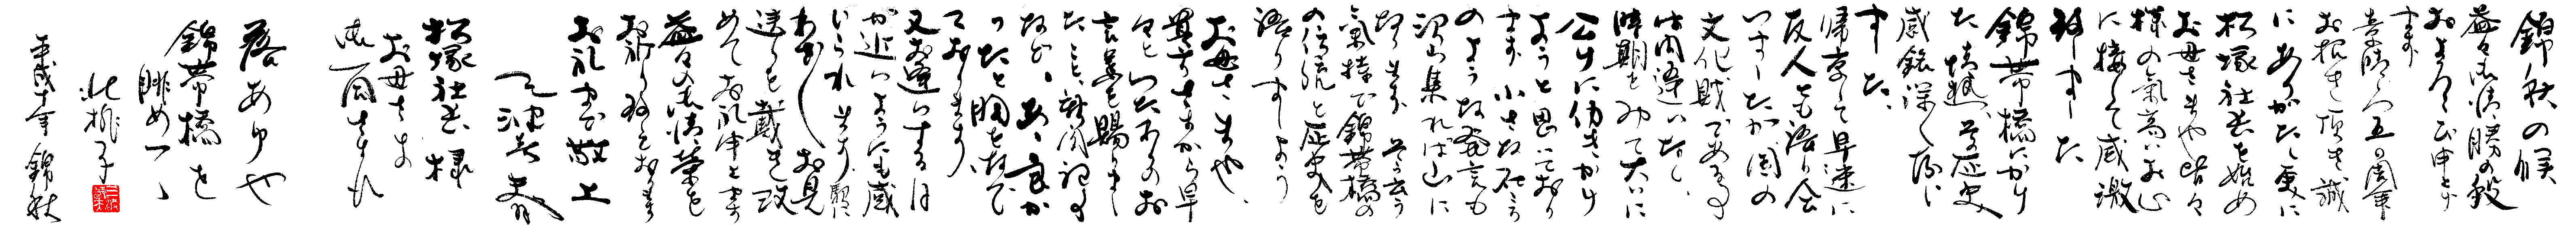 錦秋の候
益々御清勝の段
およろこび申上げ
ます
素晴らしい五周年
お招きを頂き誠
にありがたく更に
松塚社長を始め
お母さまや皆々
様の気高いお心
に接して感激
致しました
錦帯橋にかけ
た情熱、そして歴史
感銘深く拝し
ました、
帰京して早速に
友人とも語り会
いましたが国の
文化財である事
は間違いなく、
時期をみて大いに
公けに働きかけ
ようと思いており
ます 小さな石ころ
のような発言も
沢山集れば山に
なります そう云う
気持で錦帯橋の
の伝統と歴史を
語りましょう
お母さまや、
貴方さまから早
々といたわりのお
言葉を賜りまし
たこと、新聞記事
など、ああ、良か
ったと胸をなで
ております
又お逢いする日
が近いようにも感
じられます
わざわざお見
送りも戴き改
めてお礼申上ます
益々の御清栄を
お祈り致しております
お礼まで 敬上
松塚社長様
お母さま
御一同さま
落あゆや
錦帯橋を
眺めつゝ
平成十年 錦秋